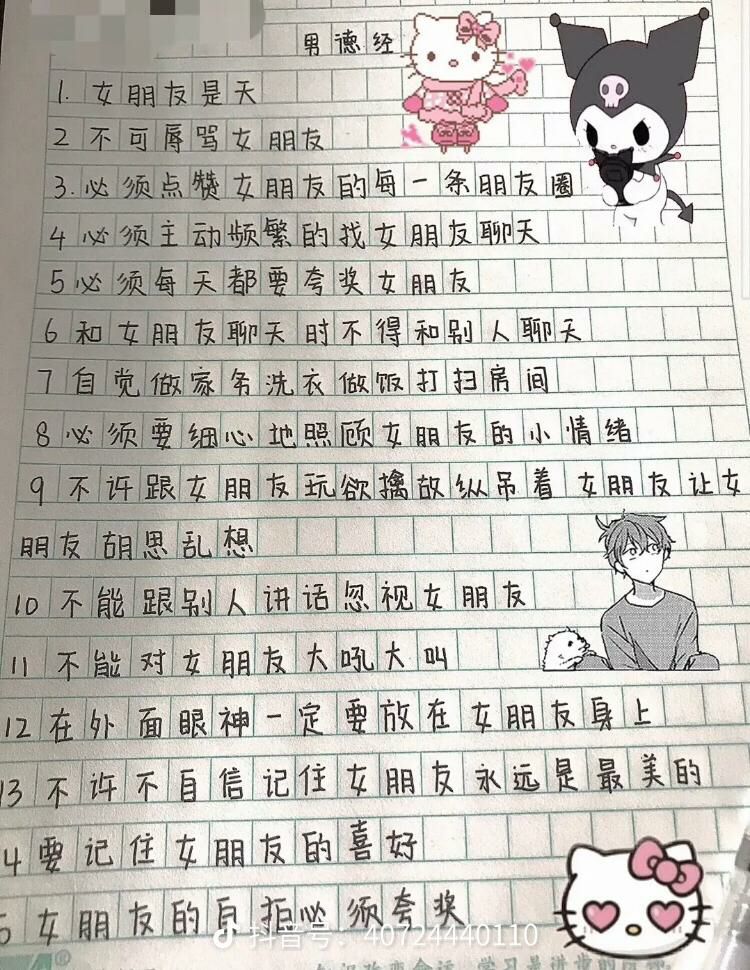 男德经
1. 女朋友是天
2 不可辱骂女朋友
3. 必须点赞女朋友的每一条朋友圈
4 必须主动频繁的找女朋友聊天
5 必须每天都要夸奖女朋友
6 和女朋友聊天时不得和别人聊天
7 自觉做家务洗衣做饭打扫房间
8 必须要细心地照顾女朋友的小情绪
9 不许跟女朋友玩欲擒故纵吊着女朋友让女
朋友胡思乱想
10 不能跟别人讲话忽视女朋友
11 不能对女朋友大吼大叫
12 在外面眼神一定要放在女朋友身上
13 不许不自信记住女朋友永远是最美的
4 要记住女朋友的喜好
5 女朋友的自拍必须夸奖
抖音号：40724440110